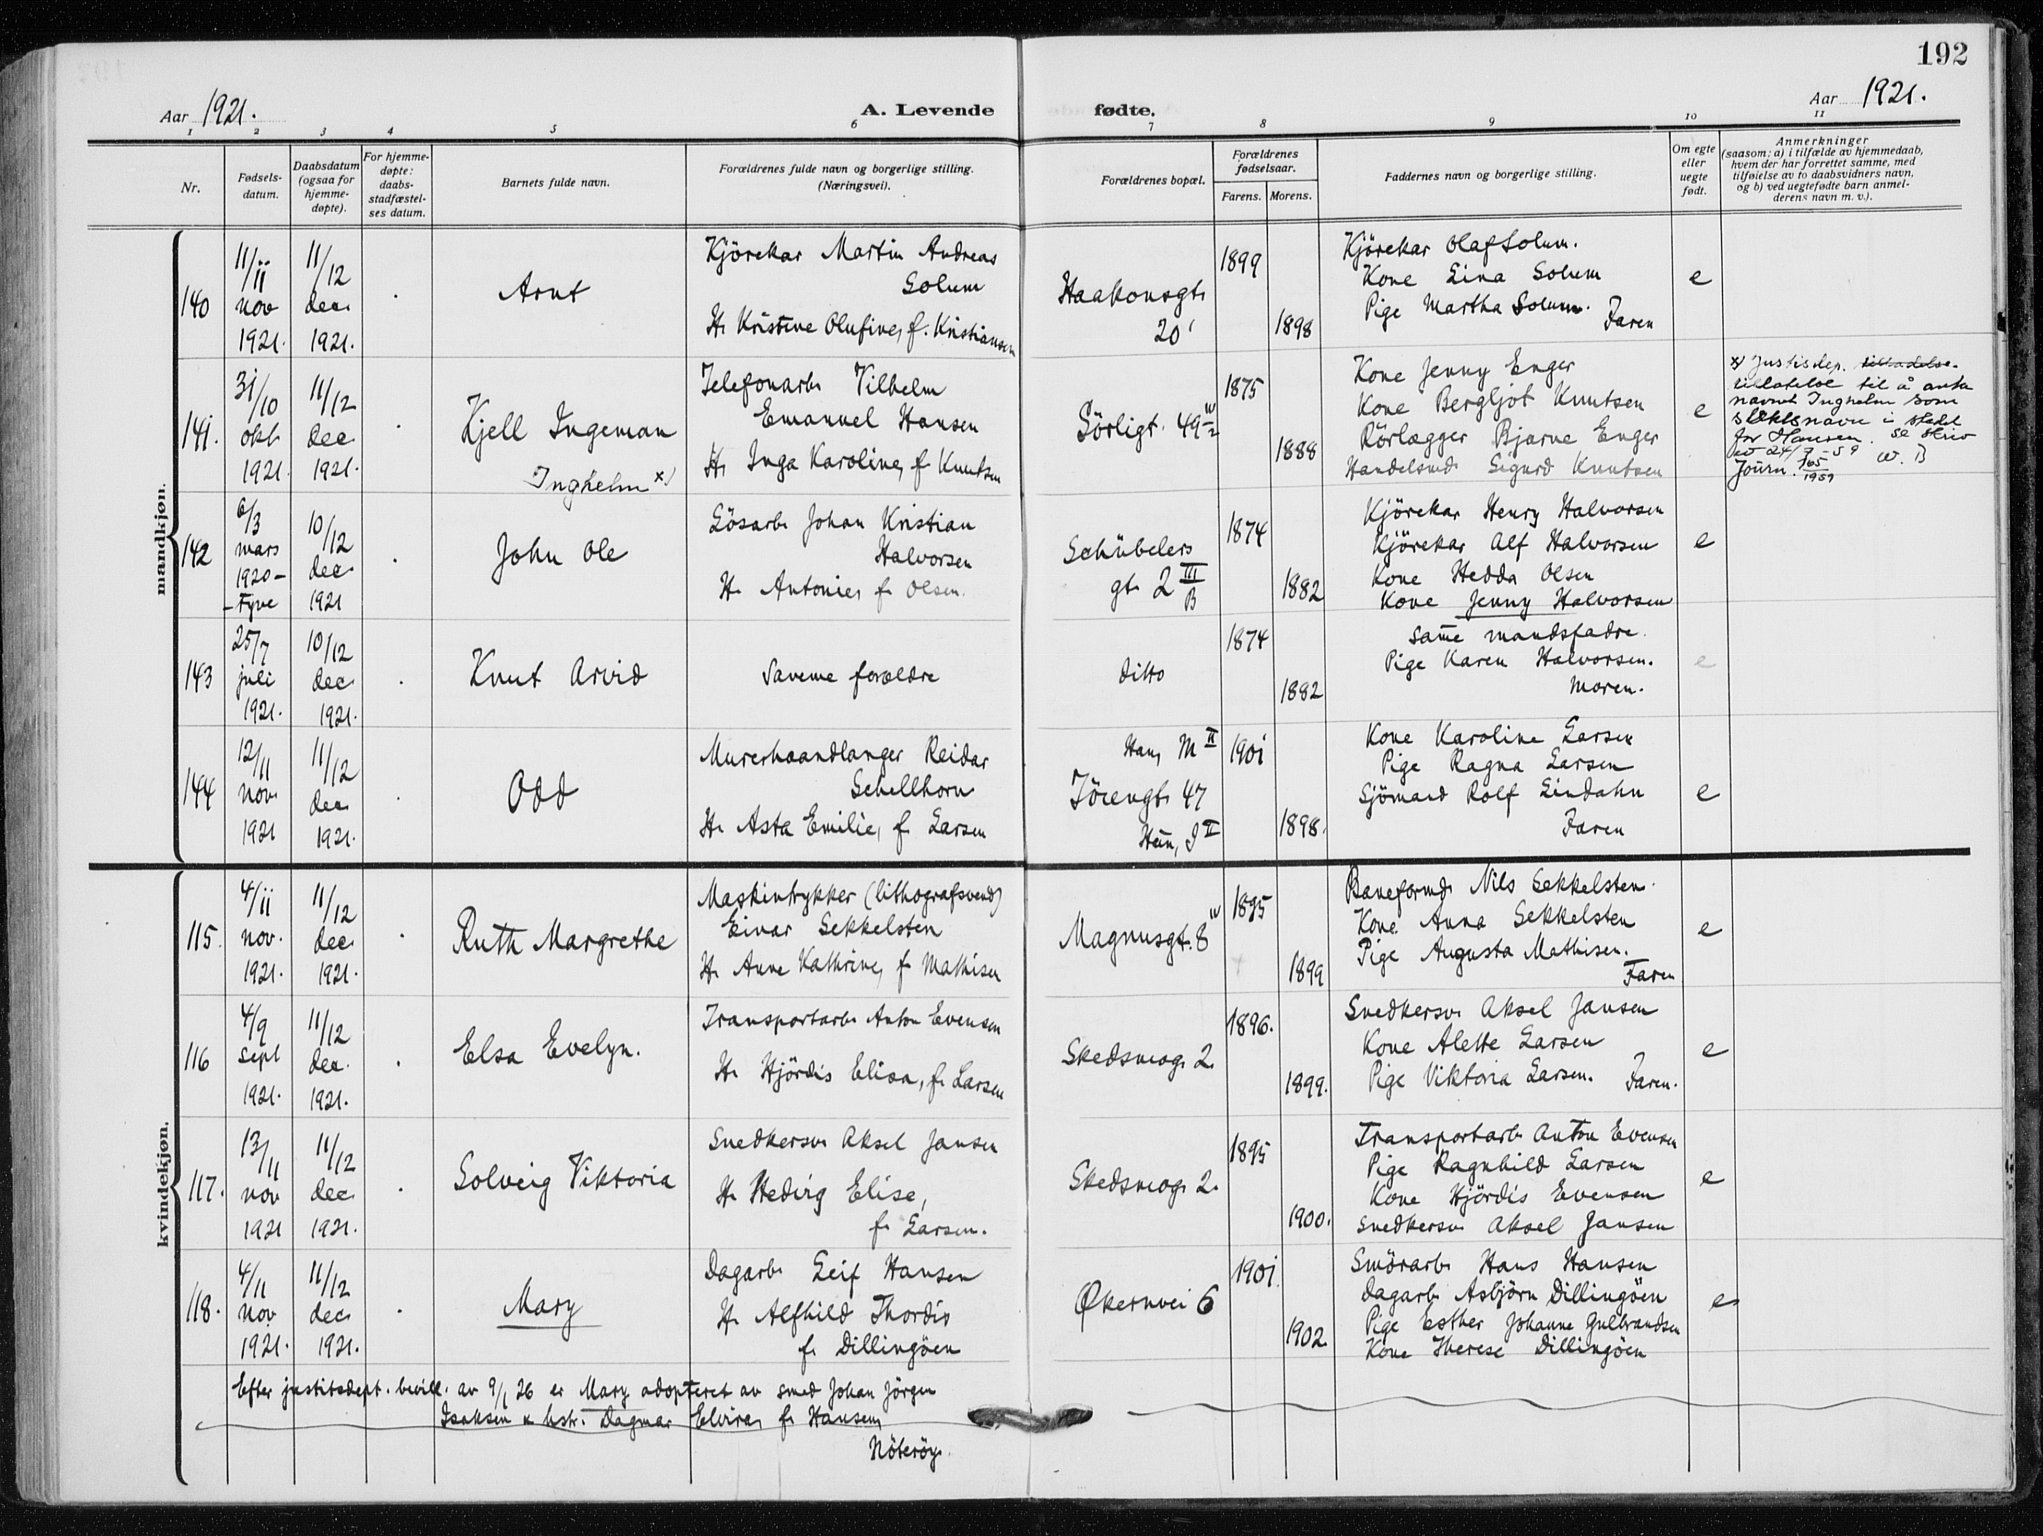 192
Aar 1921.
A. Levende fødte.
Aar 1921.
1 2 3 4 5 6 7 8 9 10 11
Nr.
Fødsels-
datum.
Daabsdatum
(ogsaa for
hjemme-
døpte).
For hjemme-
døpte:
daabs-
stadfæstel-
ses datum.
Barnets fulde navn.
Forældrenes fulde navn og borgerlige stilling.
(Næringsvei).
Forældrenes bopæl.
Forældrenes
fødselsaar.
Farens. Morens.
Faddernes navn og borgerlige stilling.
Om egte
eller
uegte
født.
Anmerkninger
(saasom: a) i tilfælde av hjemmedaab,
hvem der har forrettet samme, med
tilføielse av to daabsvidners navn,
og b) ved uegtefødte barn anmel-
derens navn m. v.).
mandkjøn.
140
11/11
nov
1921.
11/12
dec.
1921.
Arnt
Kjörekar Martin Andreas
Solum
H. Kristine Olufine, f. Kristiansen
Haakonsgt.
20'
1899
1898
Kjörekar Olaf Solum.
Kone Lina Solum
Pige Martha Solum. Faren
e
141.
31/10
okt.
1921.
11/12
dec.
1921.
Kjell Ingeman
Inghelm x)
Telefonarb. Vilhelm
Emanuel Hansen
H. Inga Karoline, f. Knutsen
Sörligt. 49
1875
1888
Kone Jenny Enger
Kone Bergljot Knutsen
Rörlægger Bjarne Enger
Handelsmd. Sigurd Knutsen
e
x) Justisdep. tilladelse
tillatelse til å anta
navnet Inghelm som
slektsnavn i stedet
for Hansen. se skriv
W. B
Journ. 765/1959
142
6/3
mars
1920 –
– Tyve
10/12
dec.
1921
John Ole
Lösarb. Johan Kristian
Halvorsen
H. Antonie, f. Olsen.
Schübelers
gt. 2 III
B
1874
1882
Kjörekar Henry Halvorsen
Kjörekar Alf Halvorsen
Kone Hedda Olsen
Kone Jenny Halvorsen
e
143
25/7
juli
1921.
10/12
dec.
1921.
Knut Arvid
Samme forældre
ditto
1874
1882
Samme mandsfadre.
Pige Karen Halvorsen.
Moren.
e
144
12/11
nov.
1921
11/12
dec.
1921.
Odd
Murerhaandlanger Reidar
Schellhorn
H. Asta Emilie, f. Larsen
Han, M II
Töiengt. 47
Hun, I II
1901
1898.
Kone Karoline Larsen
Pige Ragna Larsen
Sjömand Rolf Lindahn
Faren
e
kvindekjøn.
115.
4/11
nov.
1921.
11/12
dec.
1921.
Ruth Margrethe
Maskintrykker (lithografsvend)
Einar Sekkelsten
H. Anne Kathrine, f. Mathisen
Magnusgt. 8 IV
1895
1899
Baneformd. Nils Sekkelsten.
Kone Anna Sekkelsten
Pige Augusta Mathisen.
Faren
e
116
4/9
sept
1921.
11/12
dec.
1921.
Elsa Evelyn.
Transportarb. Anton Evensen
H. Hjördis Elisa, f. Larsen
Skedsmog. 2.
1896.
1899.
Snedkersv. Aksel Jansen
Kone Alette Larsen
Pige Viktoria Larsen. Faren.
e
117.
13/11
nov
1921
11/12
dec.
1921.
Solveig Viktoria
Snedkersv. Aksel Jansen
H. Hedvig Elise,
f. Larsen.
Skedsmog. 2.
1895
1900.
Transportarb. Anton Evensen
Pige Ragnhild Larsen
Kone Hjördis Evensen
Snedkersv. Aksel Jansen
e
118.
4/11
nov.
1921.
11/12
dec.
1921.
Mary
Dagarb. Leif Hansen
H. Alfhild Thordis
f. Dillingöen
Økernvei 6
1901.
1902
Smörarb. Hans Hansen
Dagarb. Asbjörn Dillingöen
Pige Esther Johanne Gulbrandsen
Kone Therese Dillingöen
e
Efter justitsdept. bevill. av 9/1 26 er Mary adopteret av smed Johan Jörgen
Isaksen & hstr. Dagmar Elvira, f. Hansen,
Nöteröy.